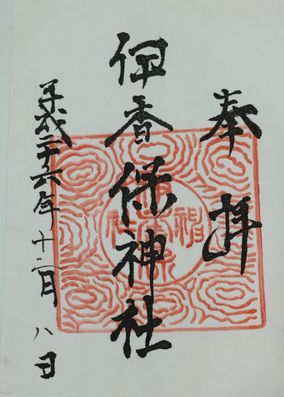 奉拝
伊香保神社
平成二十六年十二月八日